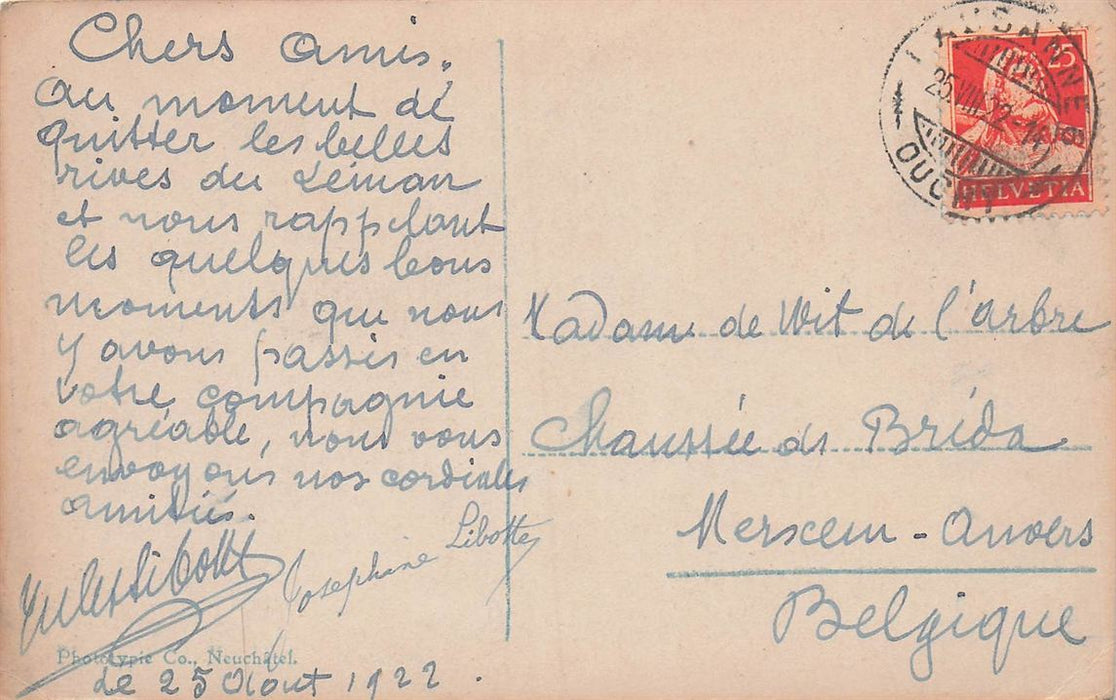 Chers amis,
Au moment de
quitter les belles
rives du Léman
et nous rappelant
les quelques bons
moments que nous
y avons passés en
votre compagnie
agréable, nous vous
envoyons nos cordiales
amitiés.
Jules Libotte
Josephine Libotte
Phototypie Co., Neuchâtel.
le 25 Août 1922.
LAUSANNE 8
25.VIII.22-14
OUCHY
25
HELVETIA
Madame de Wit de l'arbre
Chaussée de Bréda
Merxem-Anvers
Belgique